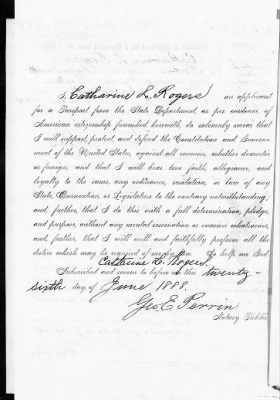 I, Catharine L. Rogers an applicant
for a Passport from the State Department, as per evidence of
American citizenship furnished herewith, do solemnly swear that
I will support, protect and defend the Constitution and Govern-
ment of the United States, against all enemies, whether domestic
or foreign, and that I will bear true faith, allegiance, and
loyalty to the same, any ordinance, resolution, or law of any
State, Convention, or Legislature to the contrary notwithstanding;
and, further, that I do this with a full determination, pledge,
and purpose, without any mental reservation or evasion whatsoever,
and, further, that I will well and faithfully perform all the
duties which may be required of me by law. So help me God.
Catharine L. Rogers.
Subscribed and sworn to before me this twenty-
sixth day of June 1888.
Geo. E. Perrin
Notary Public.